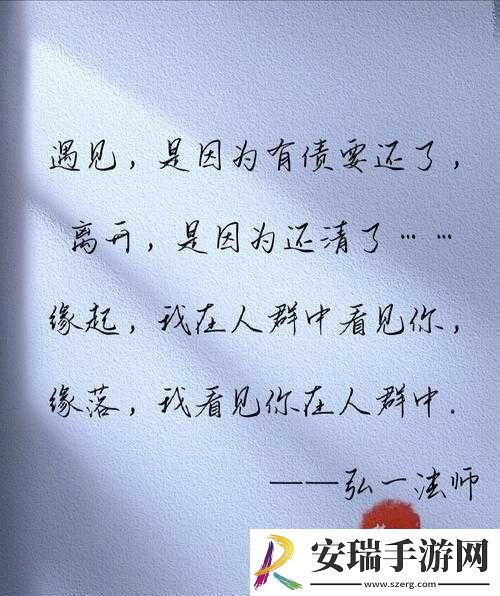 遇见，是因为有债要还了，
离开，是因为还清了……
缘起，我在人群中看见你，
缘落，我看见你在人群中.
——弘一法师
安瑞手游网
www.szerg.com